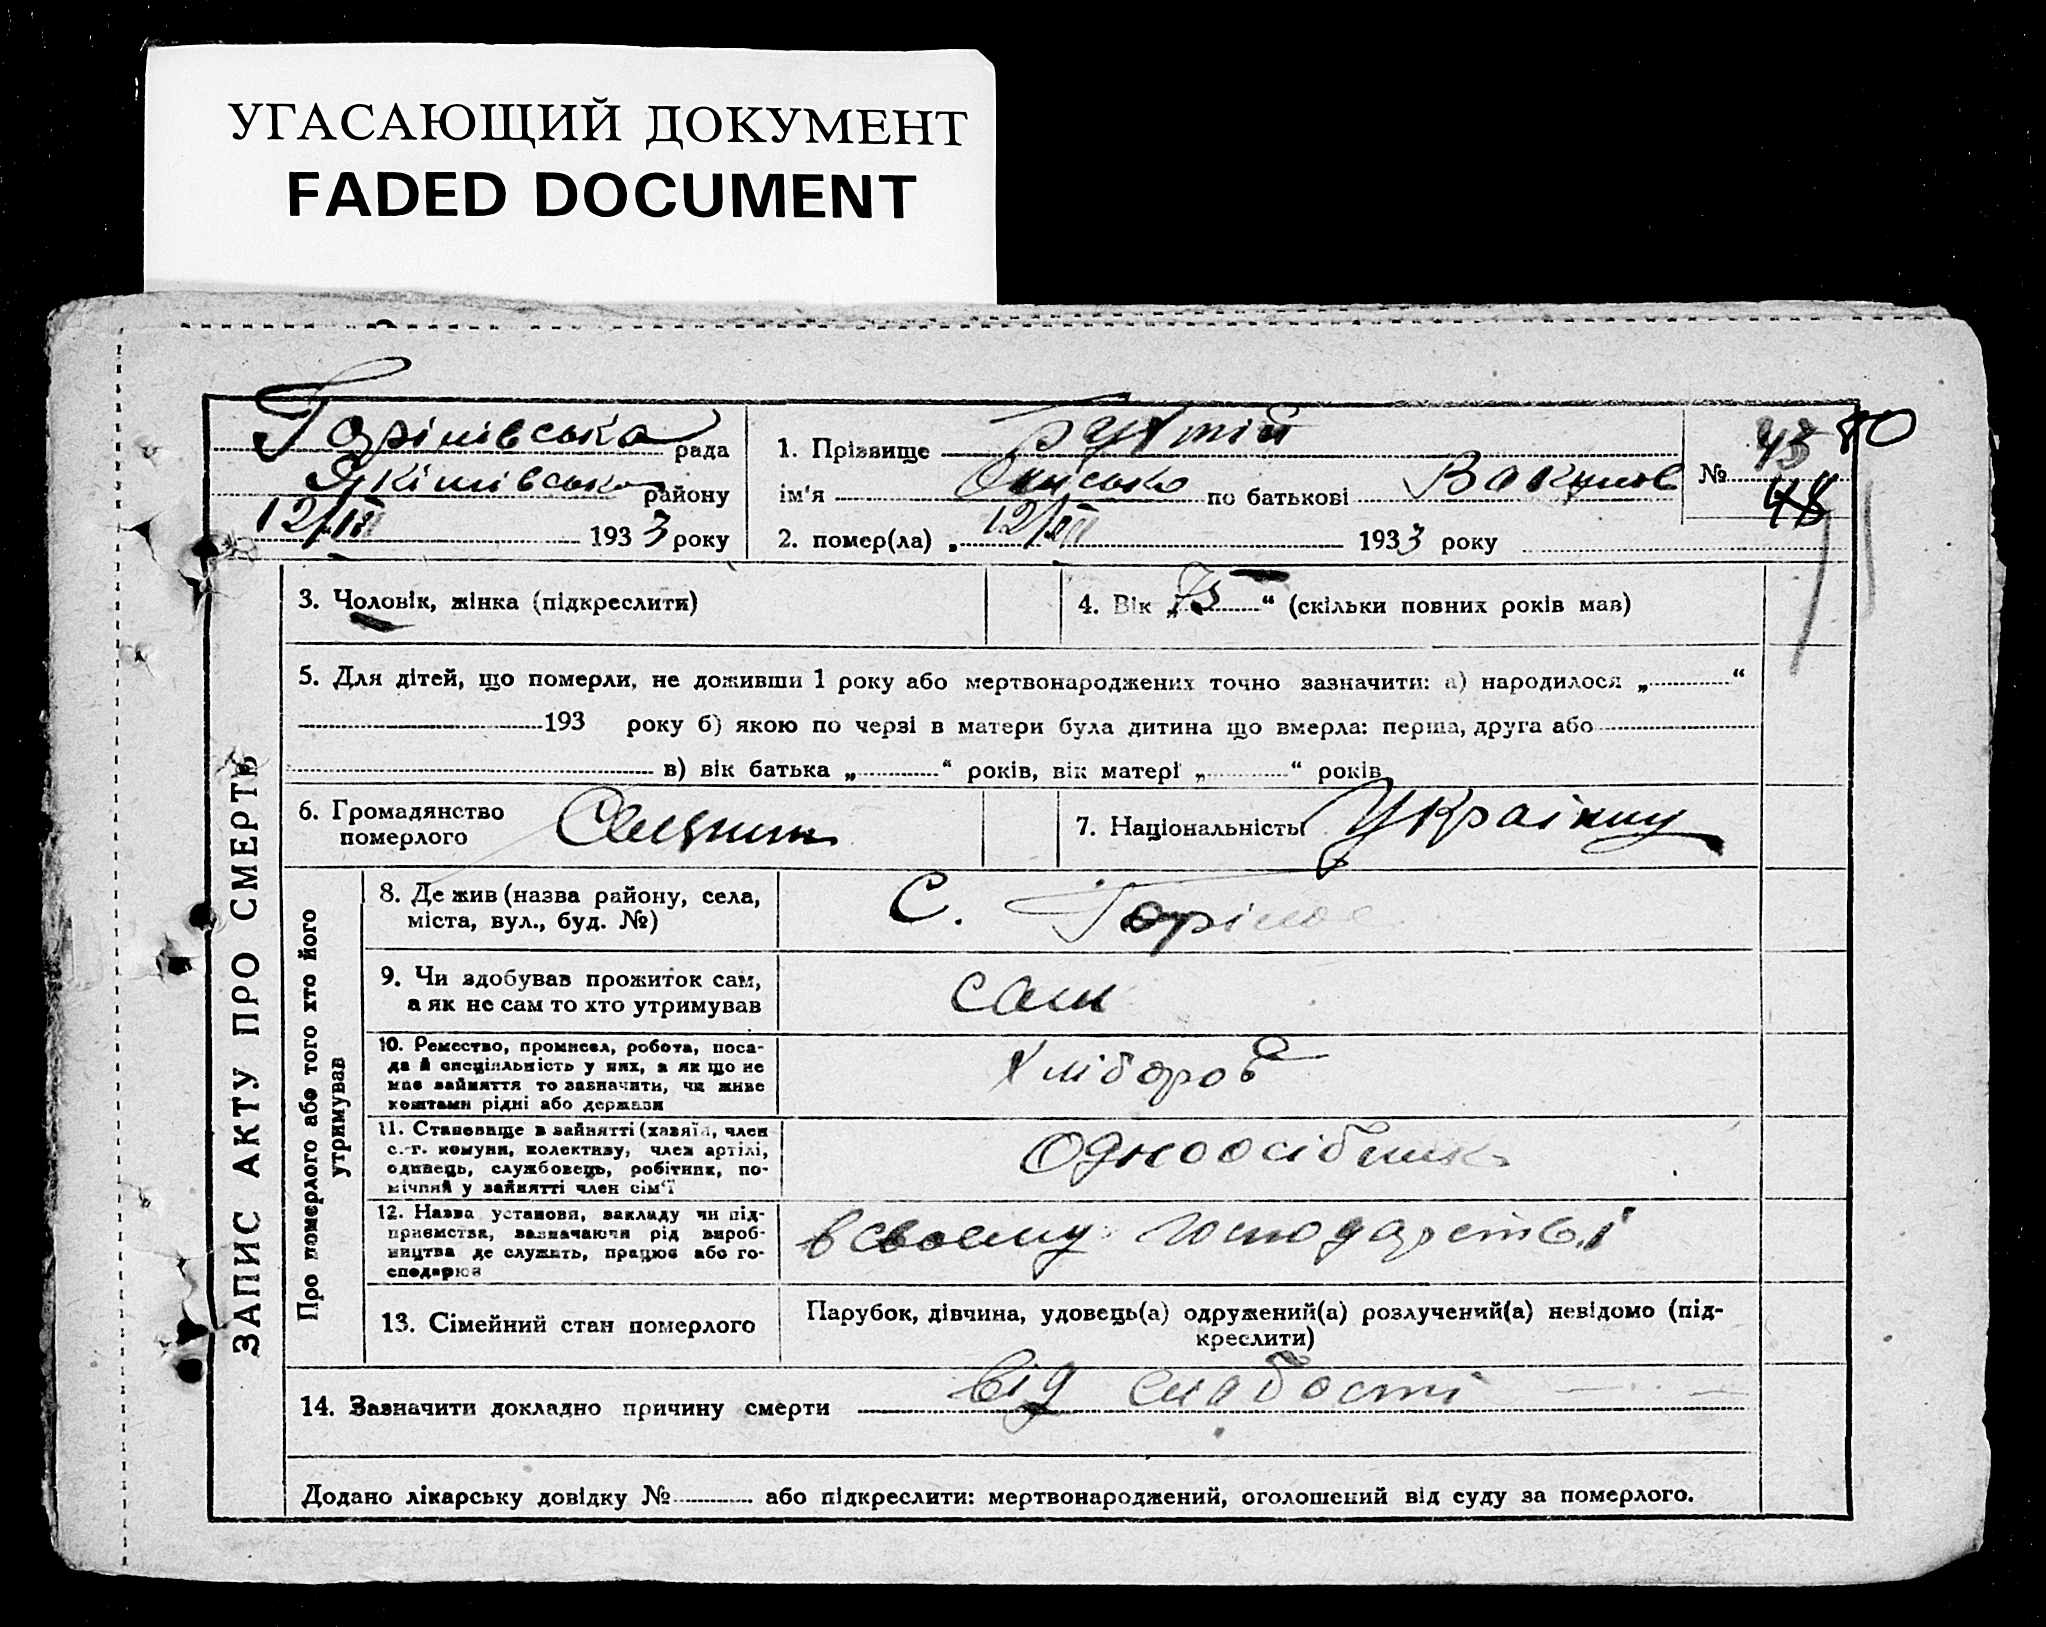 УГАСАЮЩИЙ ДОКУМЕНТ
FADED DOCUMENT
Горілівська рада
Якімівська району
12/III 1933 року
1. Прізвище
ім'я по батькові
2. помер(ла) „ 12/III 1933 року
№ 43
48
80
ЗАПИС АКТУ ПРО СМЕРТЬ
3. Чоловік, жінка (підкреслити)
4. Вік „73“ (скільки повних років мав)
5. Для дітей, що померли, не доживши 1 року або мертвонароджених точно зазначити: а) народилося „ “
193 року б) якою по черзі в матери була дитина що вмерла: перша, друга або
в) вік батька „ “ років, вік матері „ “ років
6. Громадянство
померлого
7. Національність Україниц
Про померлого або того хто його
утримував
8. Де жив (назва району, села,
міста, вул., буд. №)
С. Горілое
9. Чи здобував прожиток сам,
а як не сам то хто утримував
сам
10. Ремество, промисел, робота, поса-
да й спеціяльність у них, а як що не
мав зайняття то зазначити, чи живе
коштами рідні або держави
Хлібороб
11. Становище в зайнятті (хазяїн, член
с.-г. комуни, колективу, член артілі,
одинець, службовець, робітник, по-
мічний у зайнятті член сім'ї
Одноосібник
12. Назва установи, закладу чи під-
приємства, зазначаючи рід вироб-
ництва де служить, працює або го-
сподарює
в своєму господарстві
13. Сімейний стан померлого
Парубок, дівчина, удовець(а) одружений(а) розлучений(а) невідомо (під-
креслити)
14. Зазначити докладно причину смерти від слабості
Додано лікарську довідку № або підкреслити: мертвонароджений, оголошений від суду за померлого.